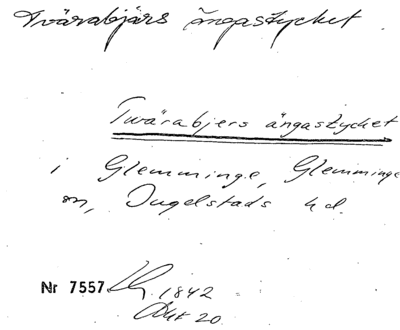 Tvärabjärs ängastycket
Twärabjers ängastycket
i Glemminge, Glemminge
sn, Ingelstads hd.
Nr 7557 1842
Akt 20